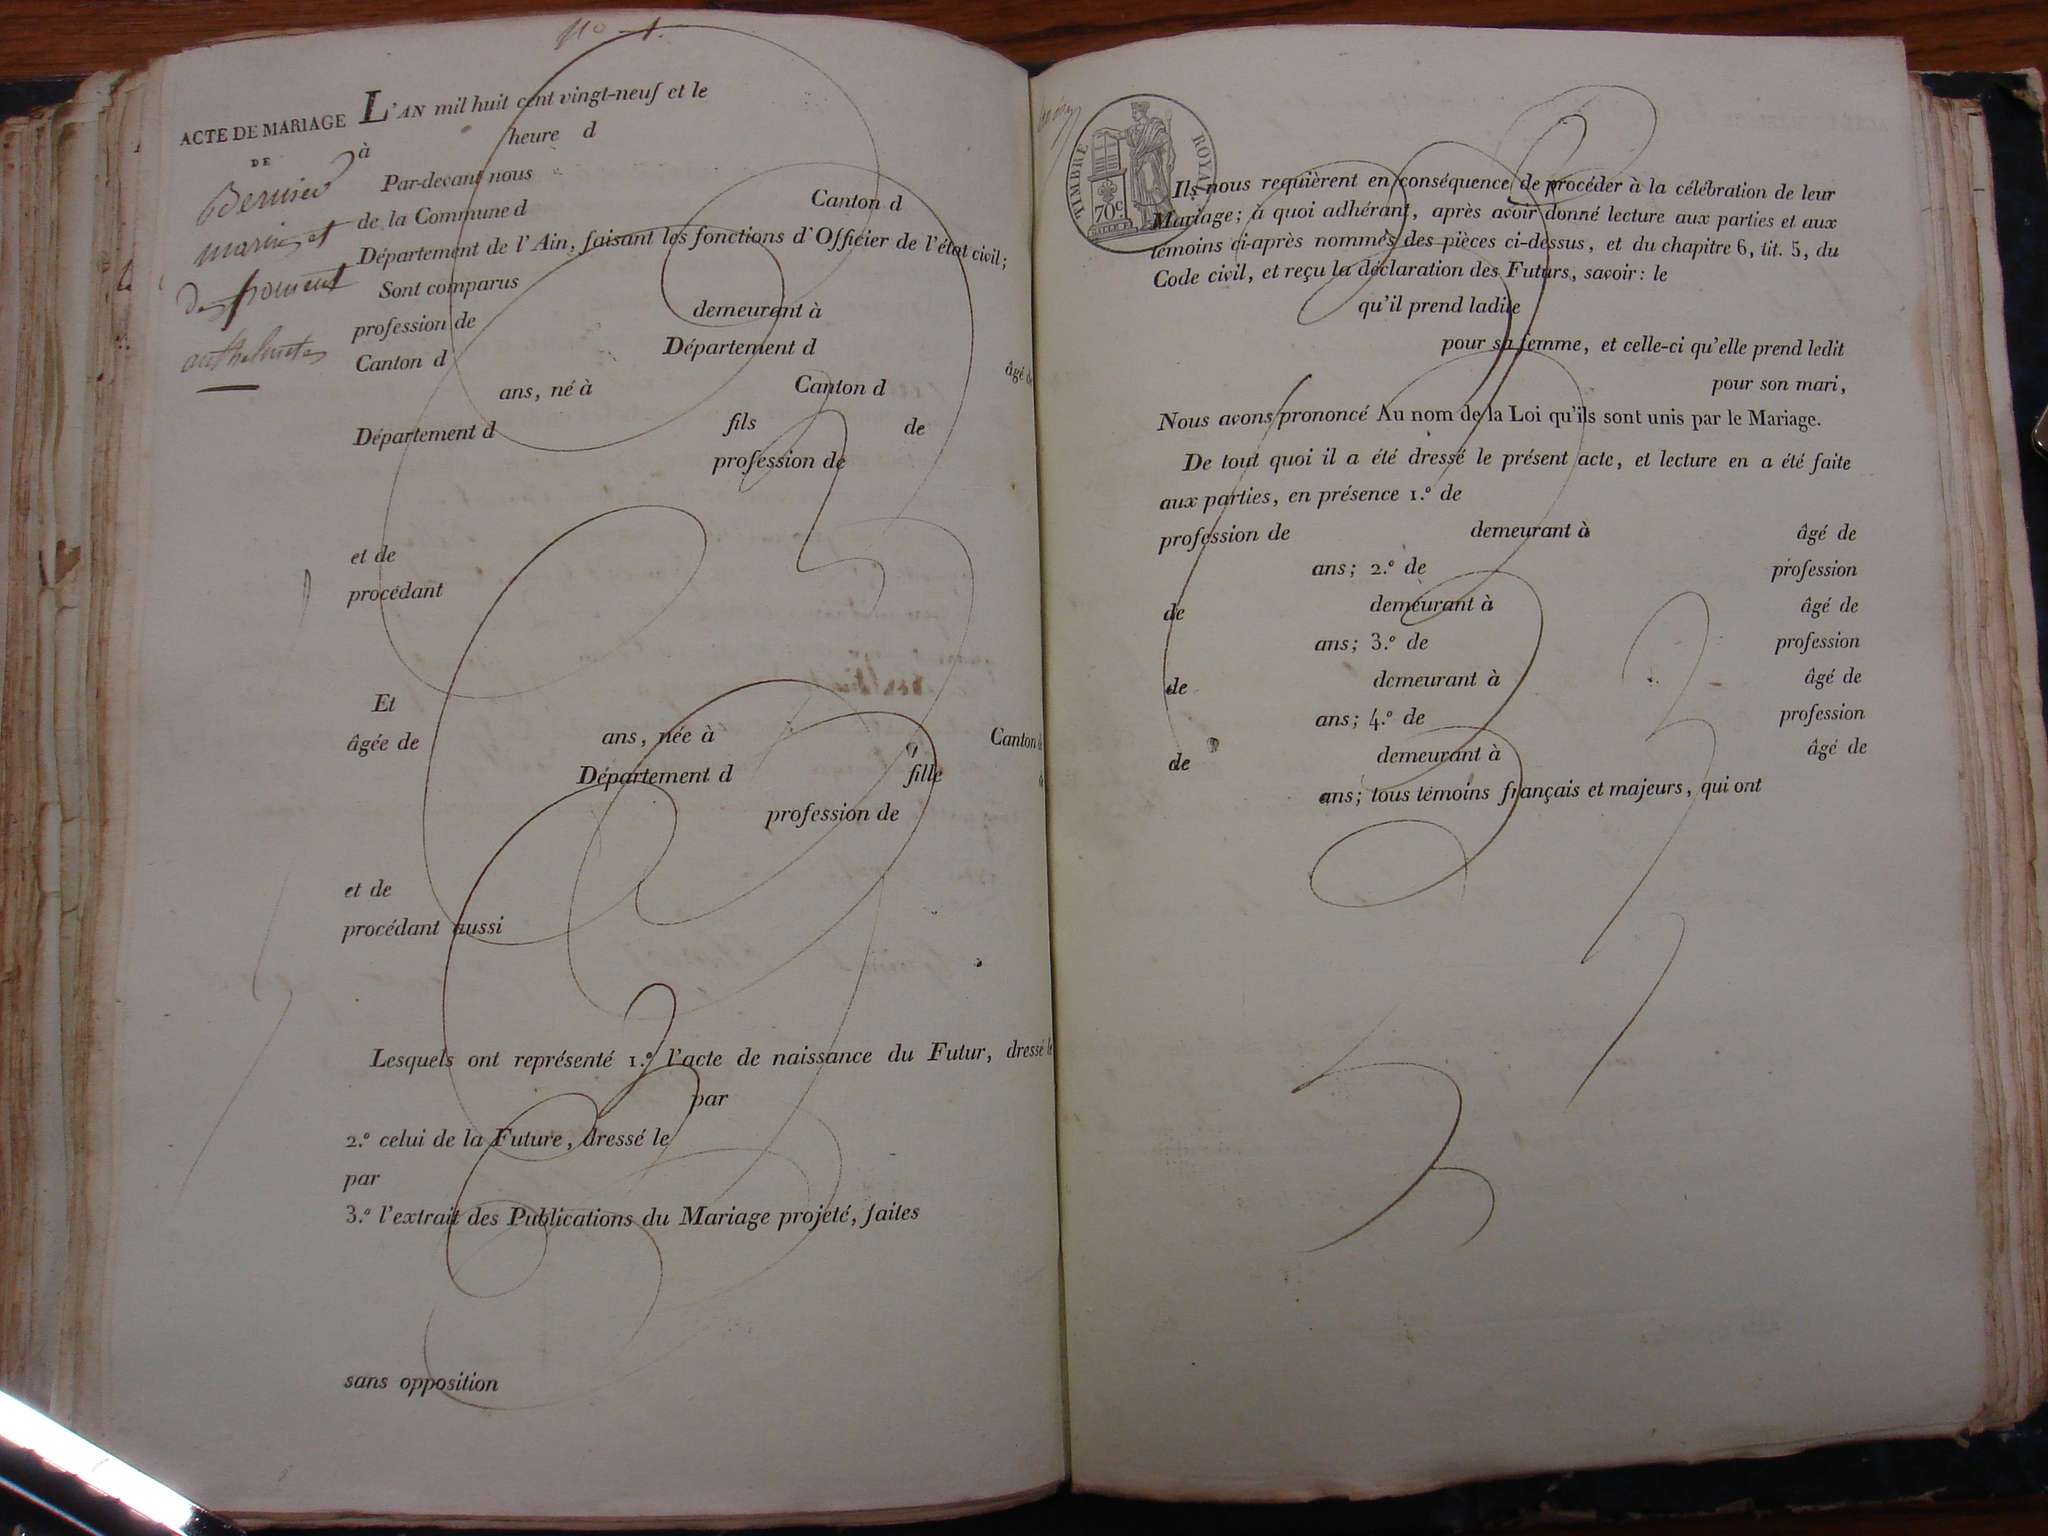 No 1.
ACTE DE MARIAGE
DE
Bernier
marin et
de froment
anthelmette
L'AN mil huit cent vingt-neuf et le
à heure d
Par-devant nous
de la Commune d Canton d
Département de l'Ain, faisant les fonctions d'Officier de l'état civil;
Sont comparus
profession de demeurant à
Canton d Département d âgé de
ans, né à Canton d
Département d fils de
profession de
et de
procédant
Et
âgée de ans, née à Canton d
Département d fille
profession de
et de
procédant aussi
Lesquels ont représenté 1.º l'acte de naissance du Futur, dressé le
par
2.º celui de la Future, dressé le
par
3.º l'extrait des Publications du Mariage projeté, faites
sans opposition
TIMBRE ROYAL
70c
Ils nous requièrent en conséquence de procéder à la célébration de leur
Mariage; à quoi adhérant, après avoir donné lecture aux parties et aux
témoins ci-après nommés des pièces ci-dessus, et du chapitre 6, tit. 5, du
Code civil, et reçu la déclaration des Futurs, savoir: le
qu'il prend ladite
pour sa femme, et celle-ci qu'elle prend ledit
pour son mari,
Nous avons prononcé Au nom de la Loi qu'ils sont unis par le Mariage.
De tout quoi il a été dressé le présent acte, et lecture en a été faite
aux parties, en présence 1.º de
profession de demeurant à âgé de
ans; 2.º de profession
de demeurant à âgé de
ans; 3.º de profession
de demeurant à âgé de
ans; 4.º de profession
de demeurant à âgé de
ans; tous témoins français et majeurs, qui ont